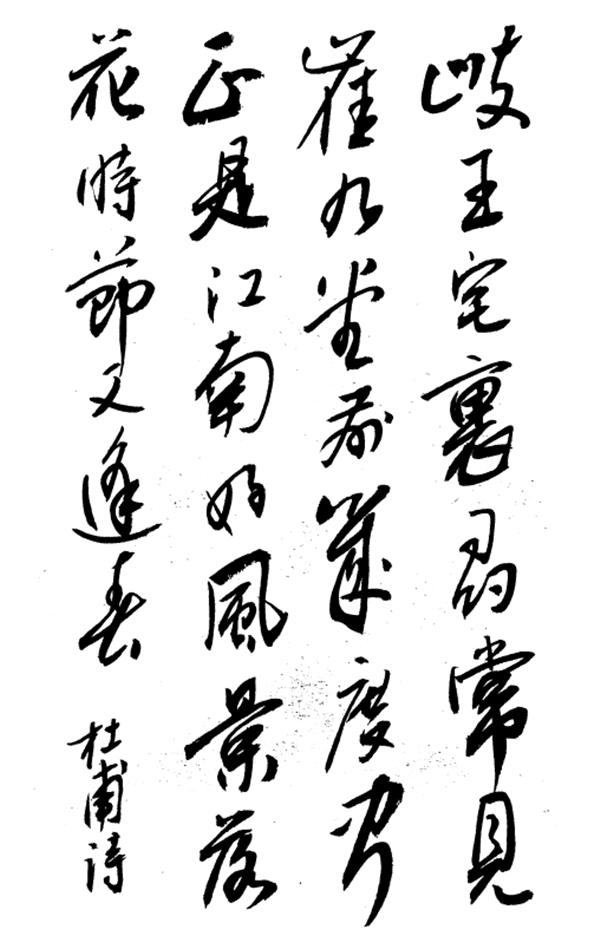 岐王宅裏尋常見
崔九堂前幾度聞
正是江南好風景落
花時節又逢君
杜甫詩